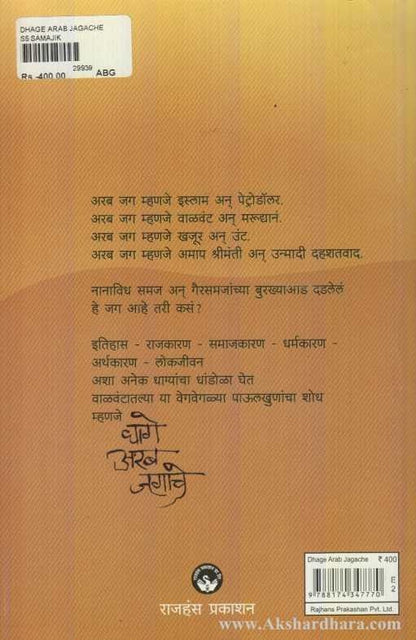 DHAGE ARAB JAGACHE
SS SAMAJIK
29939
Rs.-400.00 ABG
अरब जग म्हणजे इस्लाम अन् पेट्रोडॉलर.
अरब जग म्हणजे वाळवंट अन् मरूद्यानं.
अरब जग म्हणजे खजूर अन् उंट.
अरब जग म्हणजे अमाप श्रीमंती अन् उन्मादी दहशतवाद.
नानाविध समज अन् गैरसमजांच्या बुरख्याआड दडलेलं
हे जग आहे तरी कसं?
इतिहास - राजकारण - समाजकारण - धर्मकारण -
अर्थकारण - लोकजीवन
अशा अनेक धाग्यांचा धांडोळा घेत
वाळवंटातल्या या वेगवेगळ्या पाऊलखुणांचा शोध
म्हणजे
धागे
अरब
जगाचे
राजहंस प्रकाशन
Dhage Arab Jagache ₹ 400
E
2
9 788174 347770
Rajhans Prakashan Pvt. Ltd.
www.Akshardhara.com